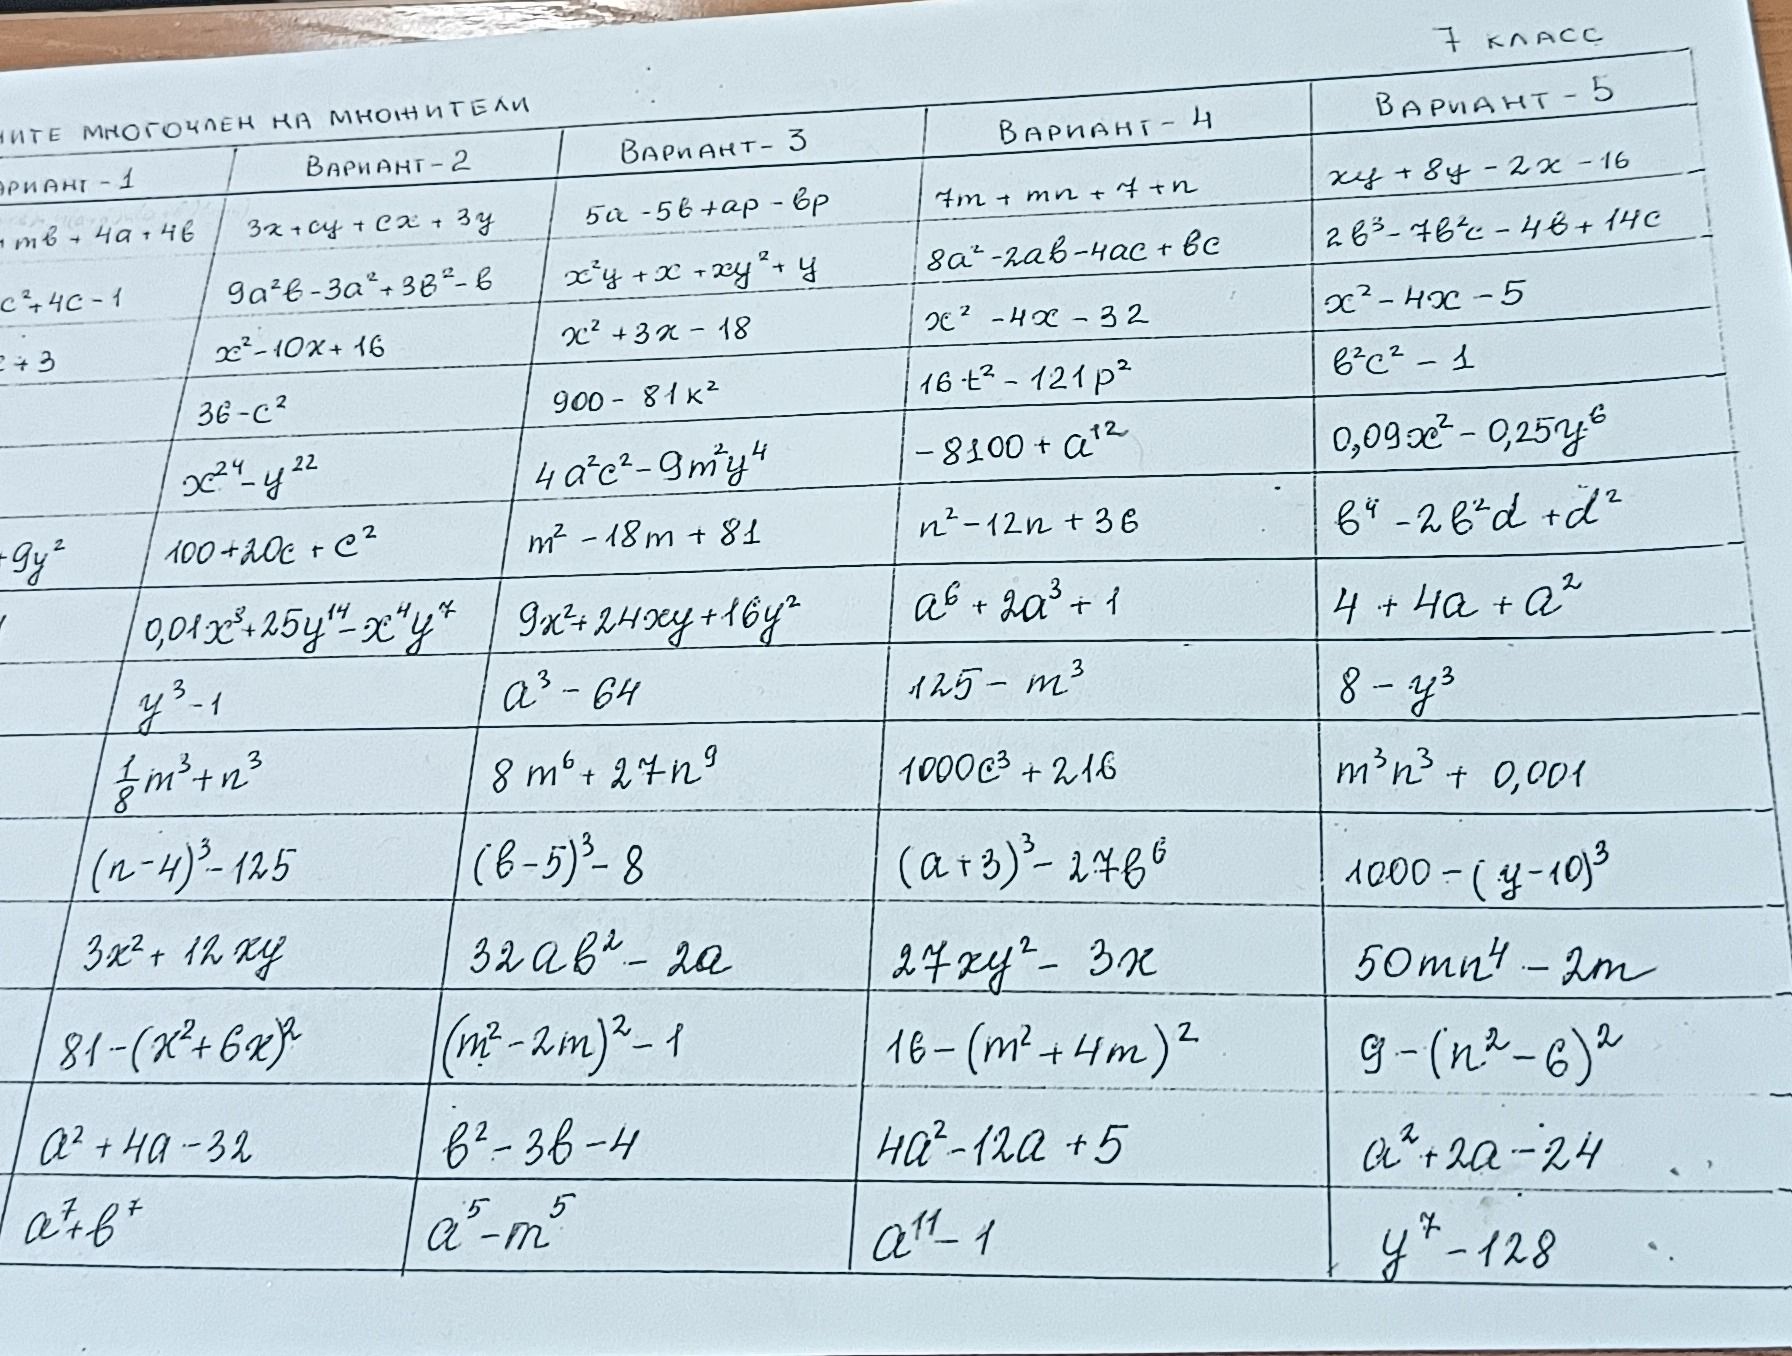 7 КЛАСС
МНОГОЧЛЕН НА МНОЖИТЕЛИ
- 1 ВАРИАНТ-2 ВАРИАНТ- 3 ВАРИАНТ- 4 ВАРИАНТ - 5
mв + 4а + 4в 3x + cy + cx + 3y 5a - 5в + ap - вp 7m + mn + 7 + n xy + 8y - 2x - 16
c² + 4c - 1 9a²в - 3a² + 3в² - в x²y + x + xy² + y 8a² - 2aв - 4ac + вc 2в³ - 7в²c - 4в + 14c
+ 3 x² - 10x + 16 x² + 3x - 18 x² - 4x - 32 x² - 4x - 5
36 - c² 900 - 81к² 16t² - 121p² в²c² - 1
x²⁴ - y²² 4a²c² - 9m²y⁴ - 8100 + a¹² 0,09x² - 0,25y⁶
+ 9y² 100 + 20c + c² m² - 18m + 81 n² - 12n + 36 в⁴ - 2в²d + d²
0,01x³ + 25y¹⁴ - x⁴y⁷ 9x² + 24xy + 16y² a⁶ + 2a³ + 1 4 + 4a + a²
y³ - 1 a³ - 64 125 - m³ 8 - y³
1/8 m³ + n³ 8m⁶ + 27n⁹ 1000c³ + 216 m³n³ + 0,001
(n - 4)³ - 125 (в - 5)³ - 8 (a + 3)³ - 27в⁶ 1000 - (y - 10)³
3x² + 12xy 32aв² - 2a 27xy² - 3x 50mn⁴ - 2m
81 - (x² + 6x)² (m² - 2m)² - 1 16 - (m² + 4m)² 9 - (n² - 6)²
a² + 4a - 32 в² - 3в - 4 4a² - 12a + 5 a² + 2a - 24
a⁷ + в⁷ a⁵ - m⁵ a¹¹ - 1 y⁷ - 128